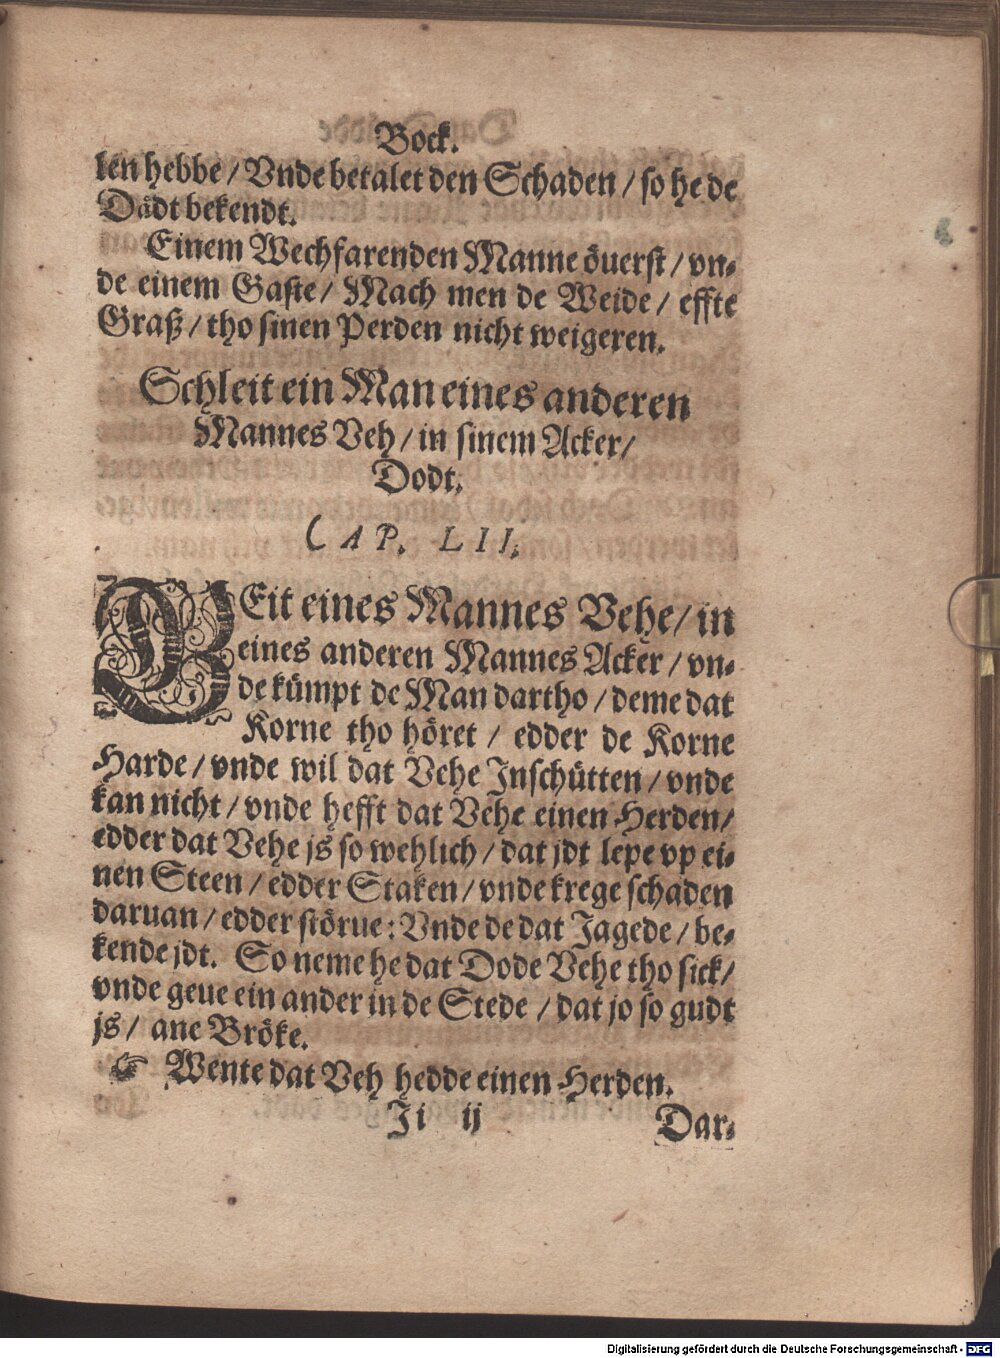 Bock.
len hebbe / Vnde betalet den Schaden / so he de
Dådt bekendt.
Einem Wechfarenden Manne öuerst / vn-
de einem Gaste / Mach men de Weide / effte
Graß / tho sinen Perden nicht weigeren.
Schleit ein Man eines anderen
Mannes Veh / in sinem Acker /
Dodt.
CAP. LII.
GEit eines Mannes Vehe / in
eines anderen Mannes Acker / vn-
de kümpt de Man dartho / deme dat
Korne tho höret / edder de Korne
Harde / vnde wil dat Vehe Inschütten / vnde
kan nicht / vnde hefft dat Vehe einen Herden /
edder dat Vehe js so wehlich / dat jdt lepe vp ei-
nen Steen / edder Staken / vnde krege schaden
daruan / edder störue: Vnde de dat Jagede / be-
kende jdt. So neme he dat Dode Vehe tho sick /
vnde geue ein ander in de Stede / dat jo so gudt
js / ane Bröke.
☞ Wente dat Veh hedde einen Herden.
Ji ij Dar-
Digitalisierung gefördert durch die Deutsche Forschungsgemeinschaft - DFG